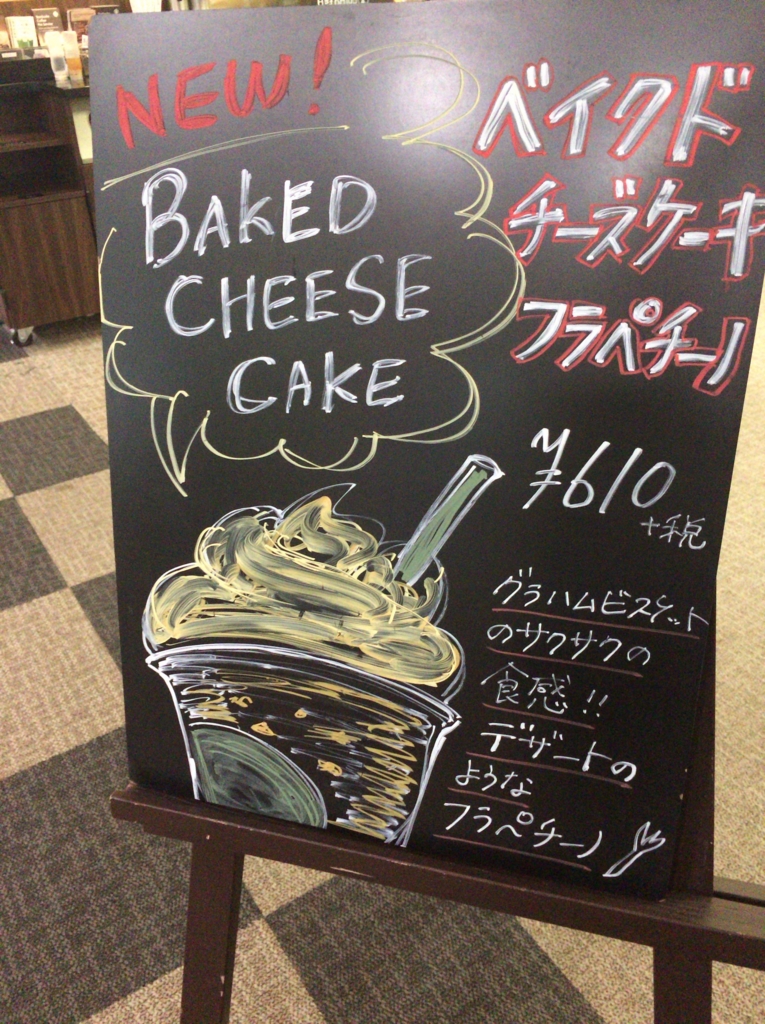 NEW!
BAKED
CHEESE
CAKE
ベイクド
チーズケーキ
フラペチーノ
¥610
+税
グラハムビスケット
のサクサクの
食感!!
デザートの
ような
フラペチーノ